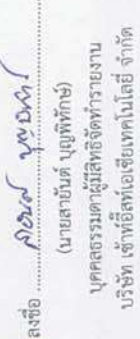 ลงชื่อ
(นายสายันต์ บุญพิทักษ์)
บุคคลธรรมดาผู้มีสิทธิจัดทำรายงาน
บริษัท เซ้าท์อีสท์เอเชียเทคโนโลยี จำกัด